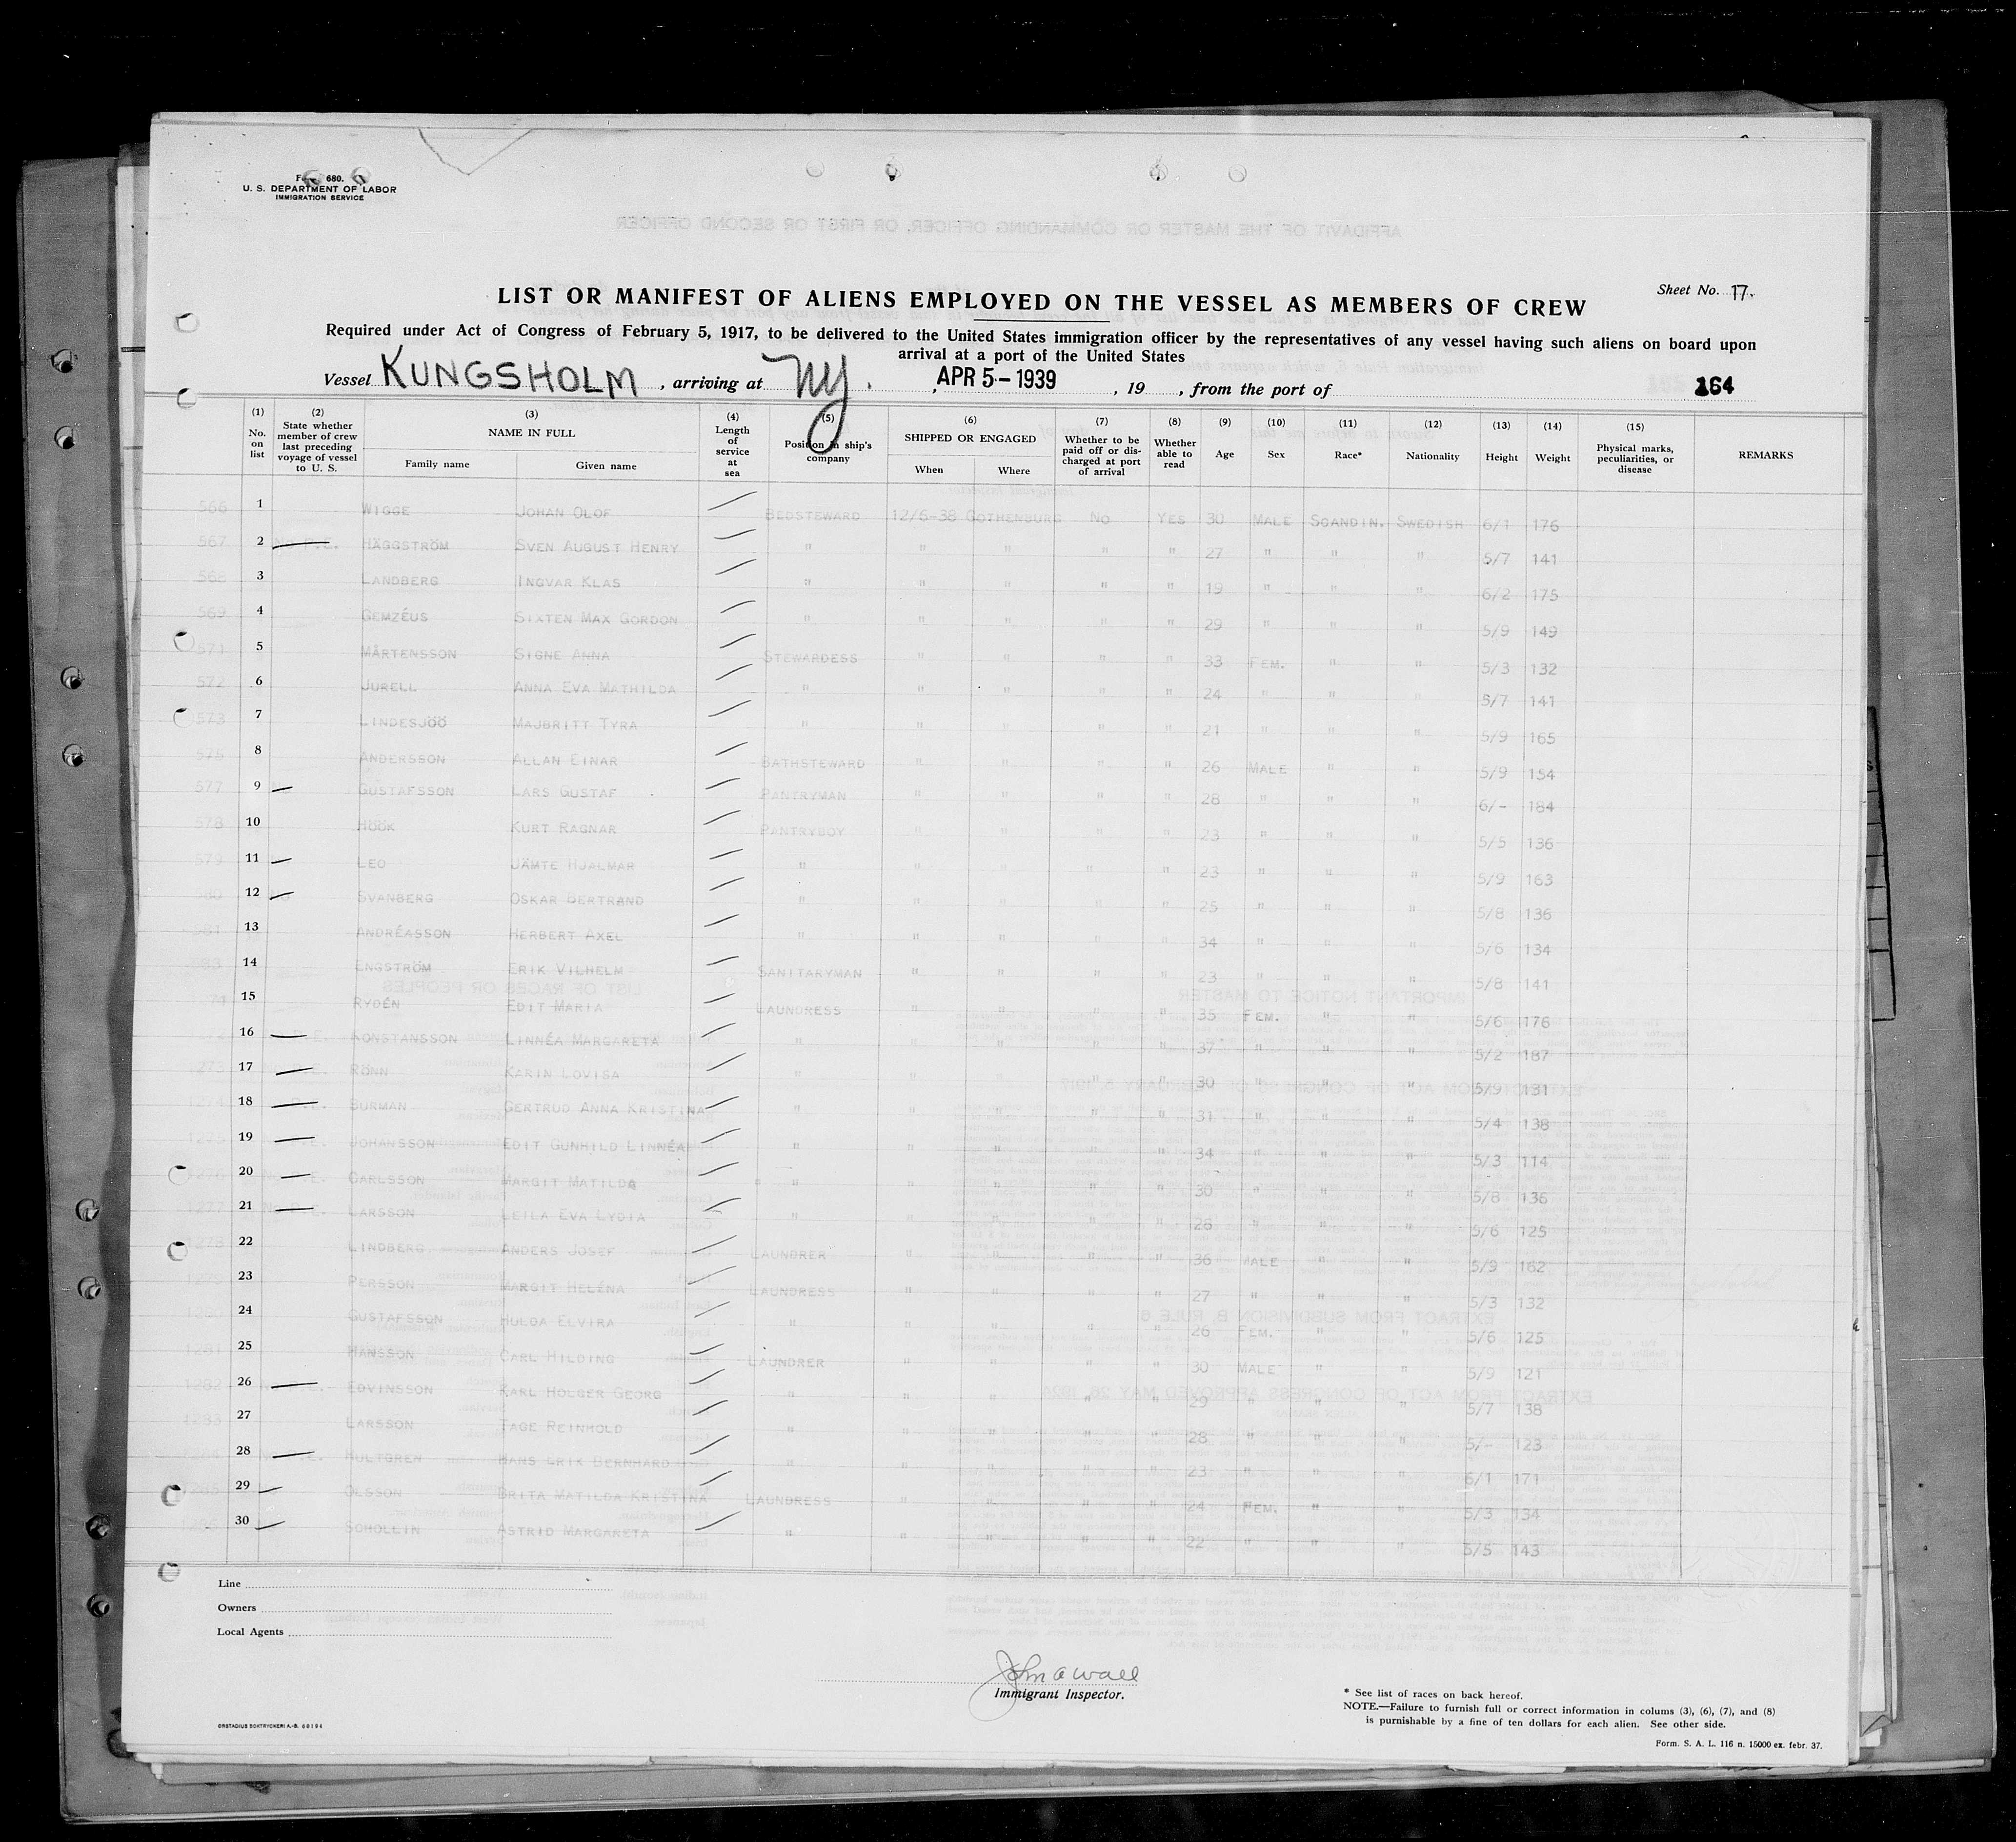 Form 680.
U. S. DEPARTMENT OF LABOR
IMMIGRATION SERVICE
AFFIDAVIT OF THE MASTER OR COMMANDING OFFICER, OR FIRST OR SECOND OFFICER
Sheet No. 17.
LIST OR MANIFEST OF ALIENS EMPLOYED ON THE VESSEL AS MEMBERS OF CREW
Required under Act of Congress of February 5, 1917, to be delivered to the United States immigration officer by the representatives of any vessel having such aliens on board upon
arrival at a port of the United States
Vessel KUNGSHOLM, arriving at NY., APR 5-1939, 19, from the port of 164
(1) No. on list (2) State whether member of crew last preceding voyage of vessel to U. S. (3) NAME IN FULL Family name Given name (4) Length of service at sea (5) Position in ship's company (6) SHIPPED OR ENGAGED When Where (7) Whether to be paid off or discharged at port of arrival (8) Whether able to read (9) Age (10) Sex (11) Race* (12) Nationality (13) Height (14) Weight (15) Physical marks, peculiarities, or disease REMARKS
566 1 WIGGE JOHAN OLOF BEDSTEWARD 12/6-38 GOTHENBURG NO YES 30 MALE SCANDIN. SWEDISH 6/1 176
567 2 HÄGGSTRÖM SVEN AUGUST HENRY " " " " " 27 " " " 5/7 141
568 3 LANDBERG INGVAR KLAS " " " " " 19 " " " 6/2 175
569 4 GEMZÉUS SIXTEN MAX GORDON " " " " " 29 " " " 5/9 149
571 5 MÅRTENSSON SIGNE ANNA STEWARDESS " " " " 33 FEM. " " 5/3 132
572 6 JURELL ANNA EVA MATHILDA " " " " " 24 " " " 5/7 141
573 7 LINDESJÖÖ MAJBRITT TYRA " " " " " 21 " " " 5/9 165
576 8 ANDERSSON ALLAN EINAR BATHSTEWARD " " " " 26 MALE " " 5/9 154
577 9 GUSTAFSSON LARS GUSTAF PANTRYMAN " " " " 28 " " " 6/- 184
578 10 HÖÖK KURT RAGNAR PANTRYBOY " " " " 23 " " " 5/5 136
579 11 LEO JÄMTE HJALMAR " " " " " 23 " " " 5/9 163
580 12 SVANBERG OSKAR BERTRAND " " " " " 25 " " " 5/8 136
581 13 ANDRÉASSON HERBERT AXEL " " " " " 34 " " " 5/6 134
583 14 ENGSTRÖM ERIK VILHELM SANITARYMAN " " " " 23 " " " 5/8 141
15 RYDÉN EDIT MARIA LAUNDRESS " " " " 35 FEM. " " 5/6 176
16 KONSTANSSON LINNÉA MARGARETA " " " " " 37 " " " 5/2 187
1273 17 RÖNN KARIN LOVISA " " " " " 30 " " " 5/9 131
1274 18 BURMAN GERTRUD ANNA KRISTINA " " " " " 31 " " " 5/4 138
1275 19 JOHANSSON EDIT GUNHILD LINNÉA " " " " " 34 " " " 5/3 114
1276 20 CARLSSON MARGIT MATILDA " " " " " 30 " " " 5/8 136
1277 21 LARSSON LEILA EVA LYDIA " " " " " 26 " " " 5/6 125
1278 22 LINDBERG ANDERS JOSEF LAUNDRER " " " " 36 MALE " " 5/9 162
1279 23 PERSSON MARGIT HELÉNA LAUNDRESS " " " " 27 " " " 5/3 132
1280 24 GUSTAFSSON HULDA ELVIRA " " " " " 26 FEM. " " 5/6 125
1281 25 HANSSON CARL HILDING LAUNDRER " " " " 30 MALE " " 5/9 121
1282 26 EDVINSSON KARL HOLGER GEORG " " " " " 29 " " " 5/7 138
1283 27 LARSSON TAGE REINHOLD " " " " " 28 " " " 5/- 123
1284 28 HULTGREN HANS ERIK BERNHARD " " " " " 23 " " " 6/1 171
1285 29 OLSSON BRITA MATILDA KRISTINA LAUNDRESS " " " " 24 FEM. " " 5/3 134
1286 30 SCHOLLIN ASTRID MARGARETA " " " " " 22 " " " 5/5 143
Line
Owners
Local Agents
John A Wall
Immigrant Inspector.
* See list of races on back hereof.
NOTE.—Failure to furnish full or correct information in colums (3), (6), (7), and (8)
is punishable by a fine of ten dollars for each alien. See other side.
ORSTADIUS BOKTRYCKERI A.-B. 60194
Form. S. A. L. 116 n. 15000 ex. febr. 37.